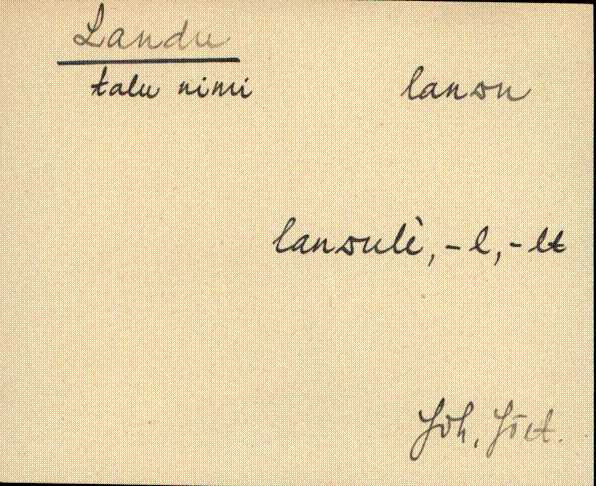 Landu
talu nimi lansu
lansulè, -l, -lt
Jõh, Jõet.